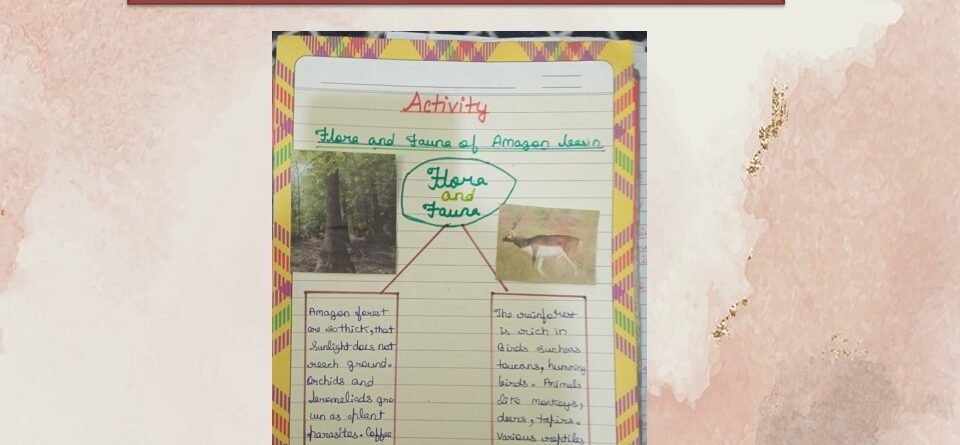 Activity
Flora and Fauna of Amazon basin
Flora
and
Fauna
Amazon forest
are so thick, that
Sunlight does not
reach ground.
Orchids and
bromeliads gro
wn as plant
parasites. Coffee
The rainforest
is rich in
Birds such as
toucans, humming
birds. Animals
like monkeys,
deers, tapirs.
Various reptiles